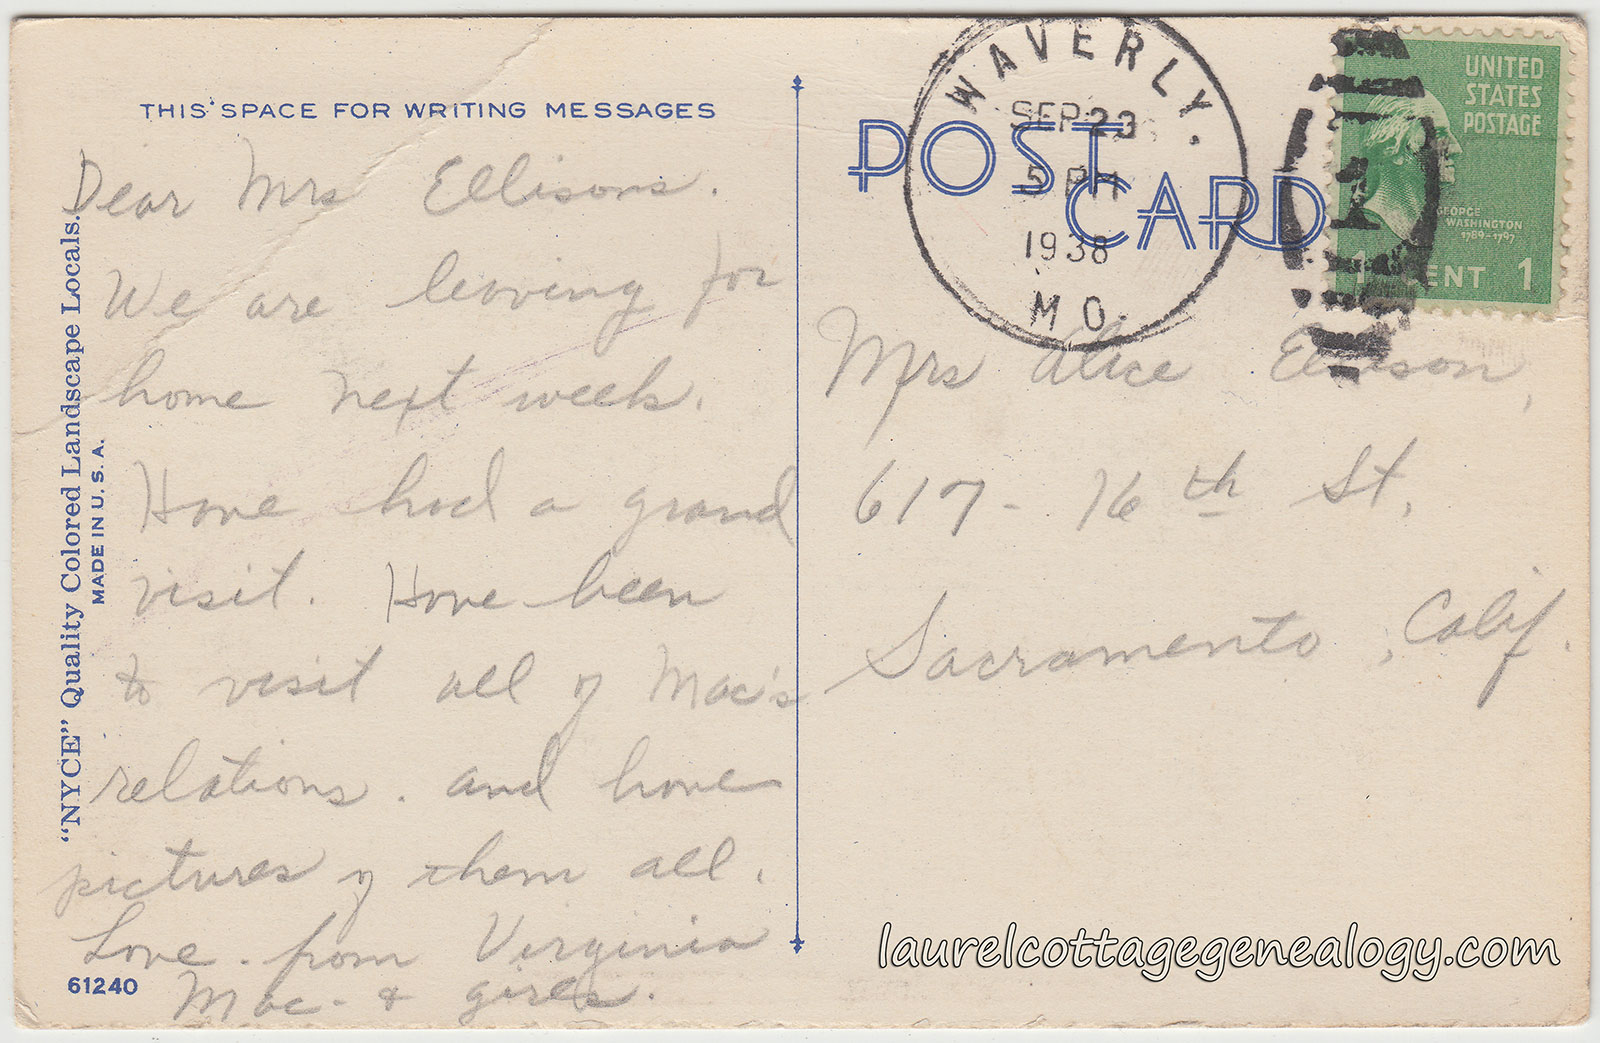 THIS SPACE FOR WRITING MESSAGES
Dear Mrs Ellisons.
We are leaving for
home next week.
Have had a grand
visit. Have been
to visit all of Mac's
relations. and have
pictures of them all.
Love. from Virginia
Mac- & girls.
61240
"NYCE" Quality Colored Landscape Locals.
MADE IN U. S. A.
POST CARD
WAVERLY.
SEP 23
5 PM
1938
MO.
UNITED
STATES
POSTAGE
1
GEORGE
WASHINGTON
1789-1797
1 CENT 1
Mrs Alice Ellison,
617 - 16th St.
Sacramento, Calif.
laurelcottagegenealogy.com